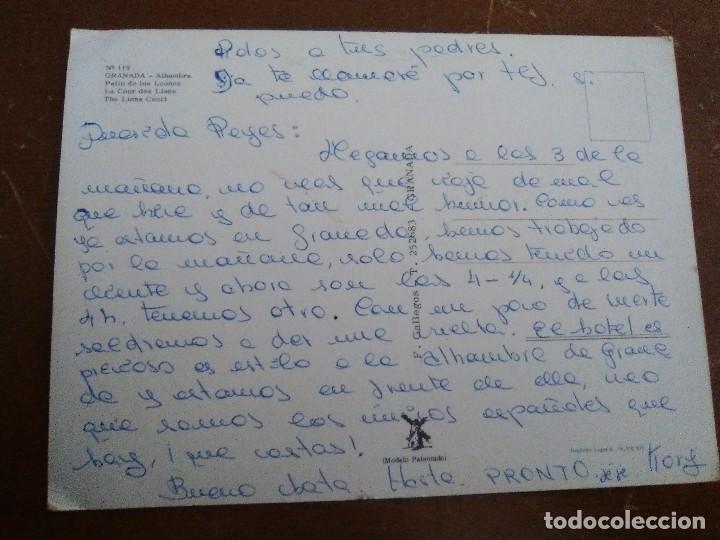 Nº 112
GRANADA - Alhambra
Patio de los Leones
La Cour des Lions
The Lions Court
Ados a tus padres.
Ya te llamaré por tef. si
puedo.
Querida Reyes:
Llegamos a las 3 de la
mañana, no veas que viaje de mal
que hice y de tan mal humor. Como ves
ya estamos en Granada, hemos trabajado
por la mañana, solo hemos tenido un
cliente y ahora son las 4-1/4, y a las
4h. tenemos otro. Con un poco de suerte
saldremos a dar una vuelta. El hotel es
precioso es estilo a la Alhambra de Grana
da y estamos en frente de ella, creo
que somos los únicos españoles que
hay, ¡que costas!
Bueno chata. Hasta PRONTO. jeje
F. Gallegos - T. 252683 - GRANADA
(Modelo Patentado)
todocoleccion.net